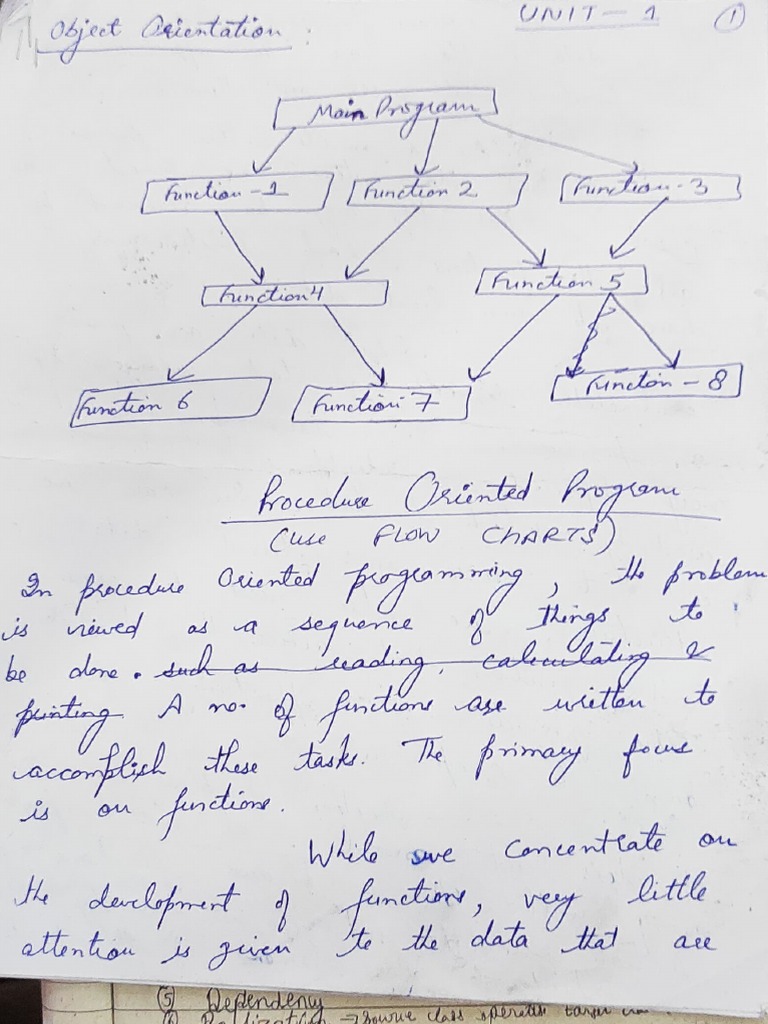 UNIT - 1 ①
Object Orientation :
Main Program
Function - 1 Function 2 Function - 3
Function 4 Function 5
Function 6 Function 7 Function - 8
Procedure Oriented Program
(use FLOW CHARTS)
In procedure Oriented programming, the problem
is viewed as a sequence of things to
be done. such as reading, calculating &
printing A no. of functions are written to
accomplish these tasks. The primary focus
is on functions.
While we concentrate on
the development of functions, very little
attention is given to the data that are
⑤ Dependency
→ source class